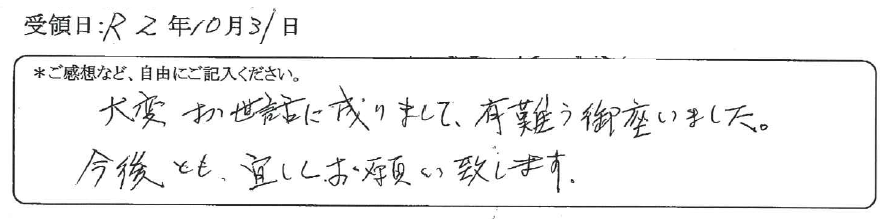 受領日:R2年10月31日
*ご感想など、自由にご記入ください。
大変お世話に成りまして、有難う御座いました。
今後とも、宜しくお願い致します。